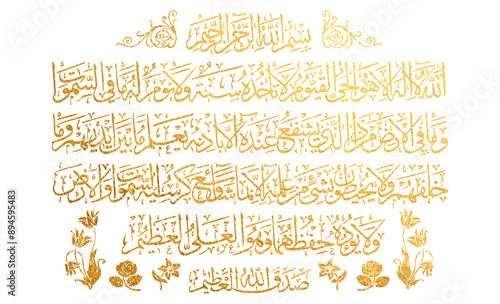 بسم الله الرحمن الرحيم
الله لا إله إلا هو الحي القيوم لا تأخذه سنة ولا نوم له ما في السموات
وما في الأرض من ذا الذي يشفع عنده إلا بإذنه يعلم ما بين أيديهم وما
خلفهم ولا يحيطون بشيء من علمه إلا بما شاء وسع كرسيه السموات والأرض
ولا يؤده حفظهما وهو العلي العظيم
صدق الله العظيم
Adobe Stock | #894595483